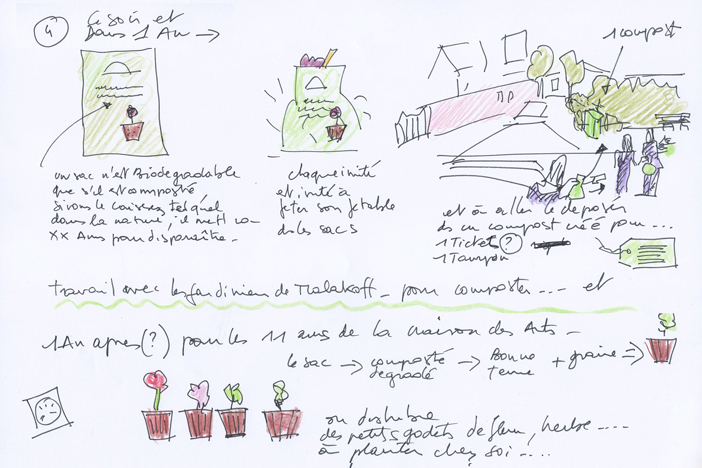 4
Ce soir et
Dans 1 An →
un sac n'est Biodégradable
que s'il est composté,
si vous le laissez tel quel
dans la nature, il mettra
XX Ans pour disparaître.
chaque invité
est invité à
jeter son jetable
ds les sacs
1 compost
et à aller le déposer
ds un compost créé pour ...
1 Ticket (?)
1 Tampon
travail avec les jardiniers de Malakoff - pour composter .... et
1 An après (?) pour les 11 ans de la maison des Arts -
le sac → composté → Bonne + graine =>
dégradé terre
on distribue
des petits godets de fleur, herbe ....
à planter chez soi ....